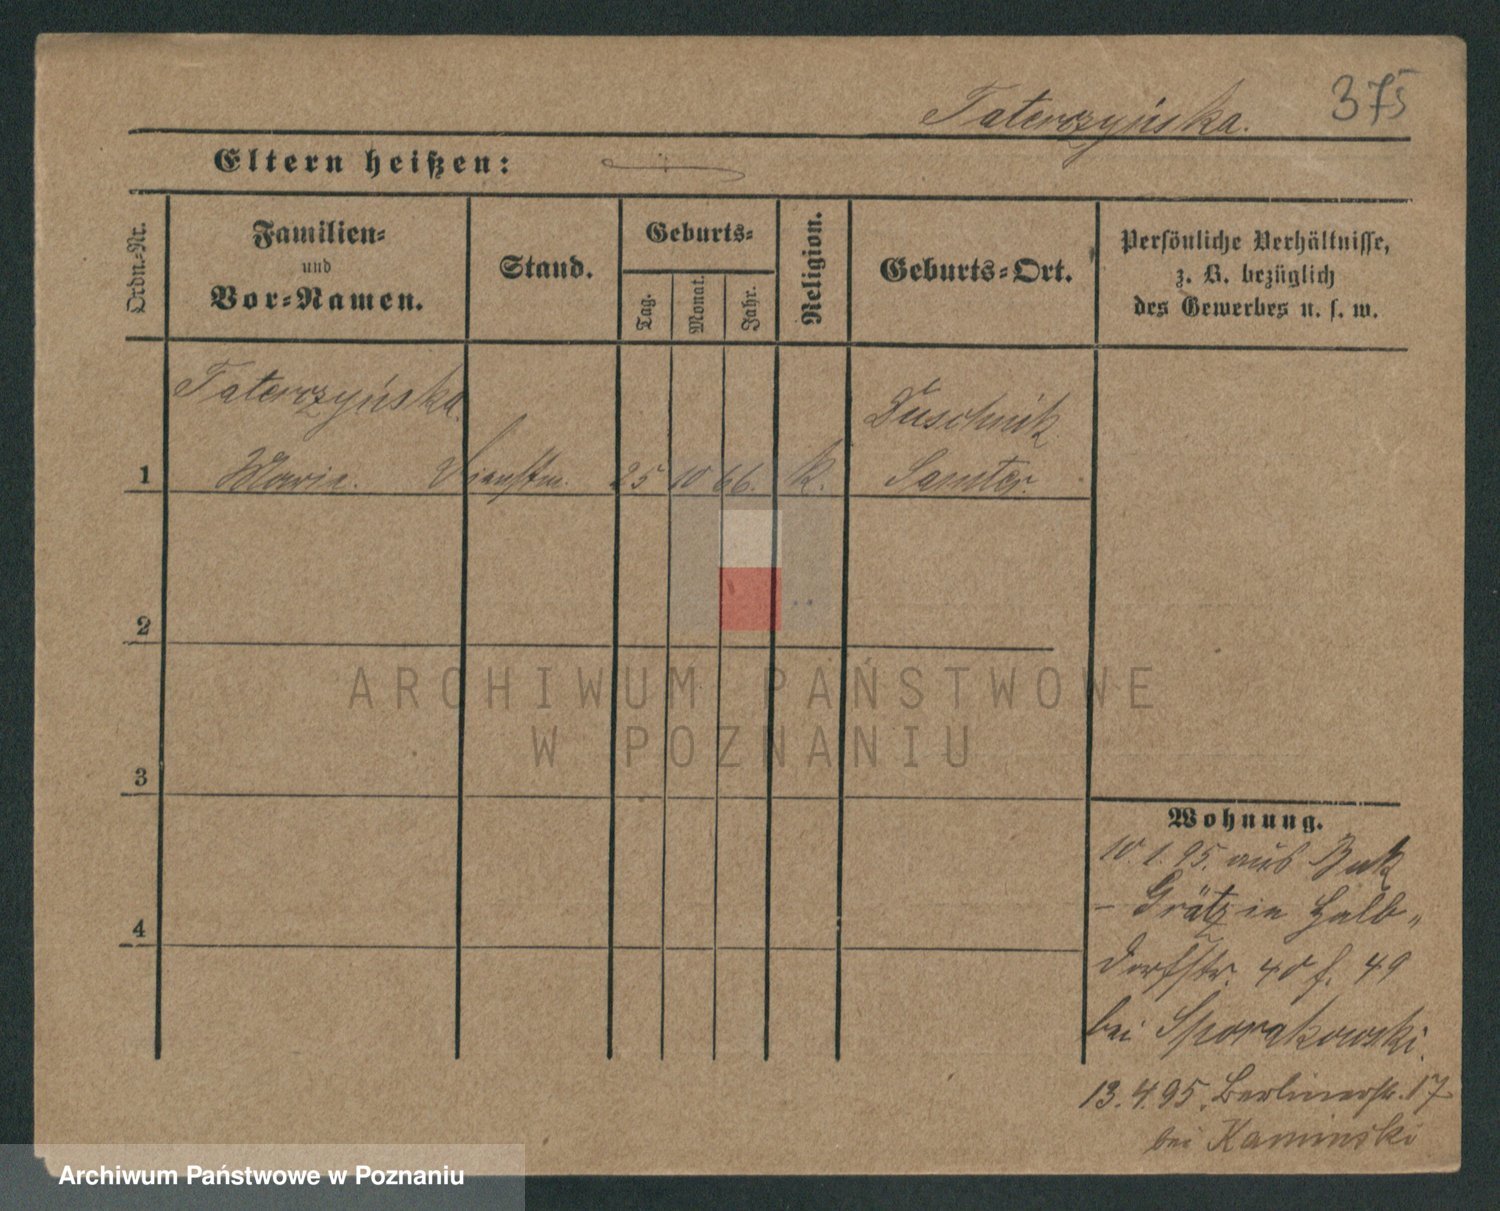 Taterczyńska.
375
Eltern heißen:
Ordn.-Nr.
Familien-
und
Vor-Namen.
Stand.
Geburts-
Tag.
Monat.
Jahr.
Religion.
Geburts-Ort.
Persönliche Verhältnisse,
z. B. bezüglich
des Gewerbes u. s. w.
Taterczyńska
Duschnik
1 Maria. 25 10 66. k. Samter.
2
ARCHIWUM PAŃSTWOWE
W POZNANIU
3
Wohnung.
10.1.95. aus Buk
- Grätz in Halb-
4
dorfstr. 40 f. 49
bei
13.4.95. Berlinerstr. 17
bei Kaminski
Archiwum Państwowe w Poznaniu